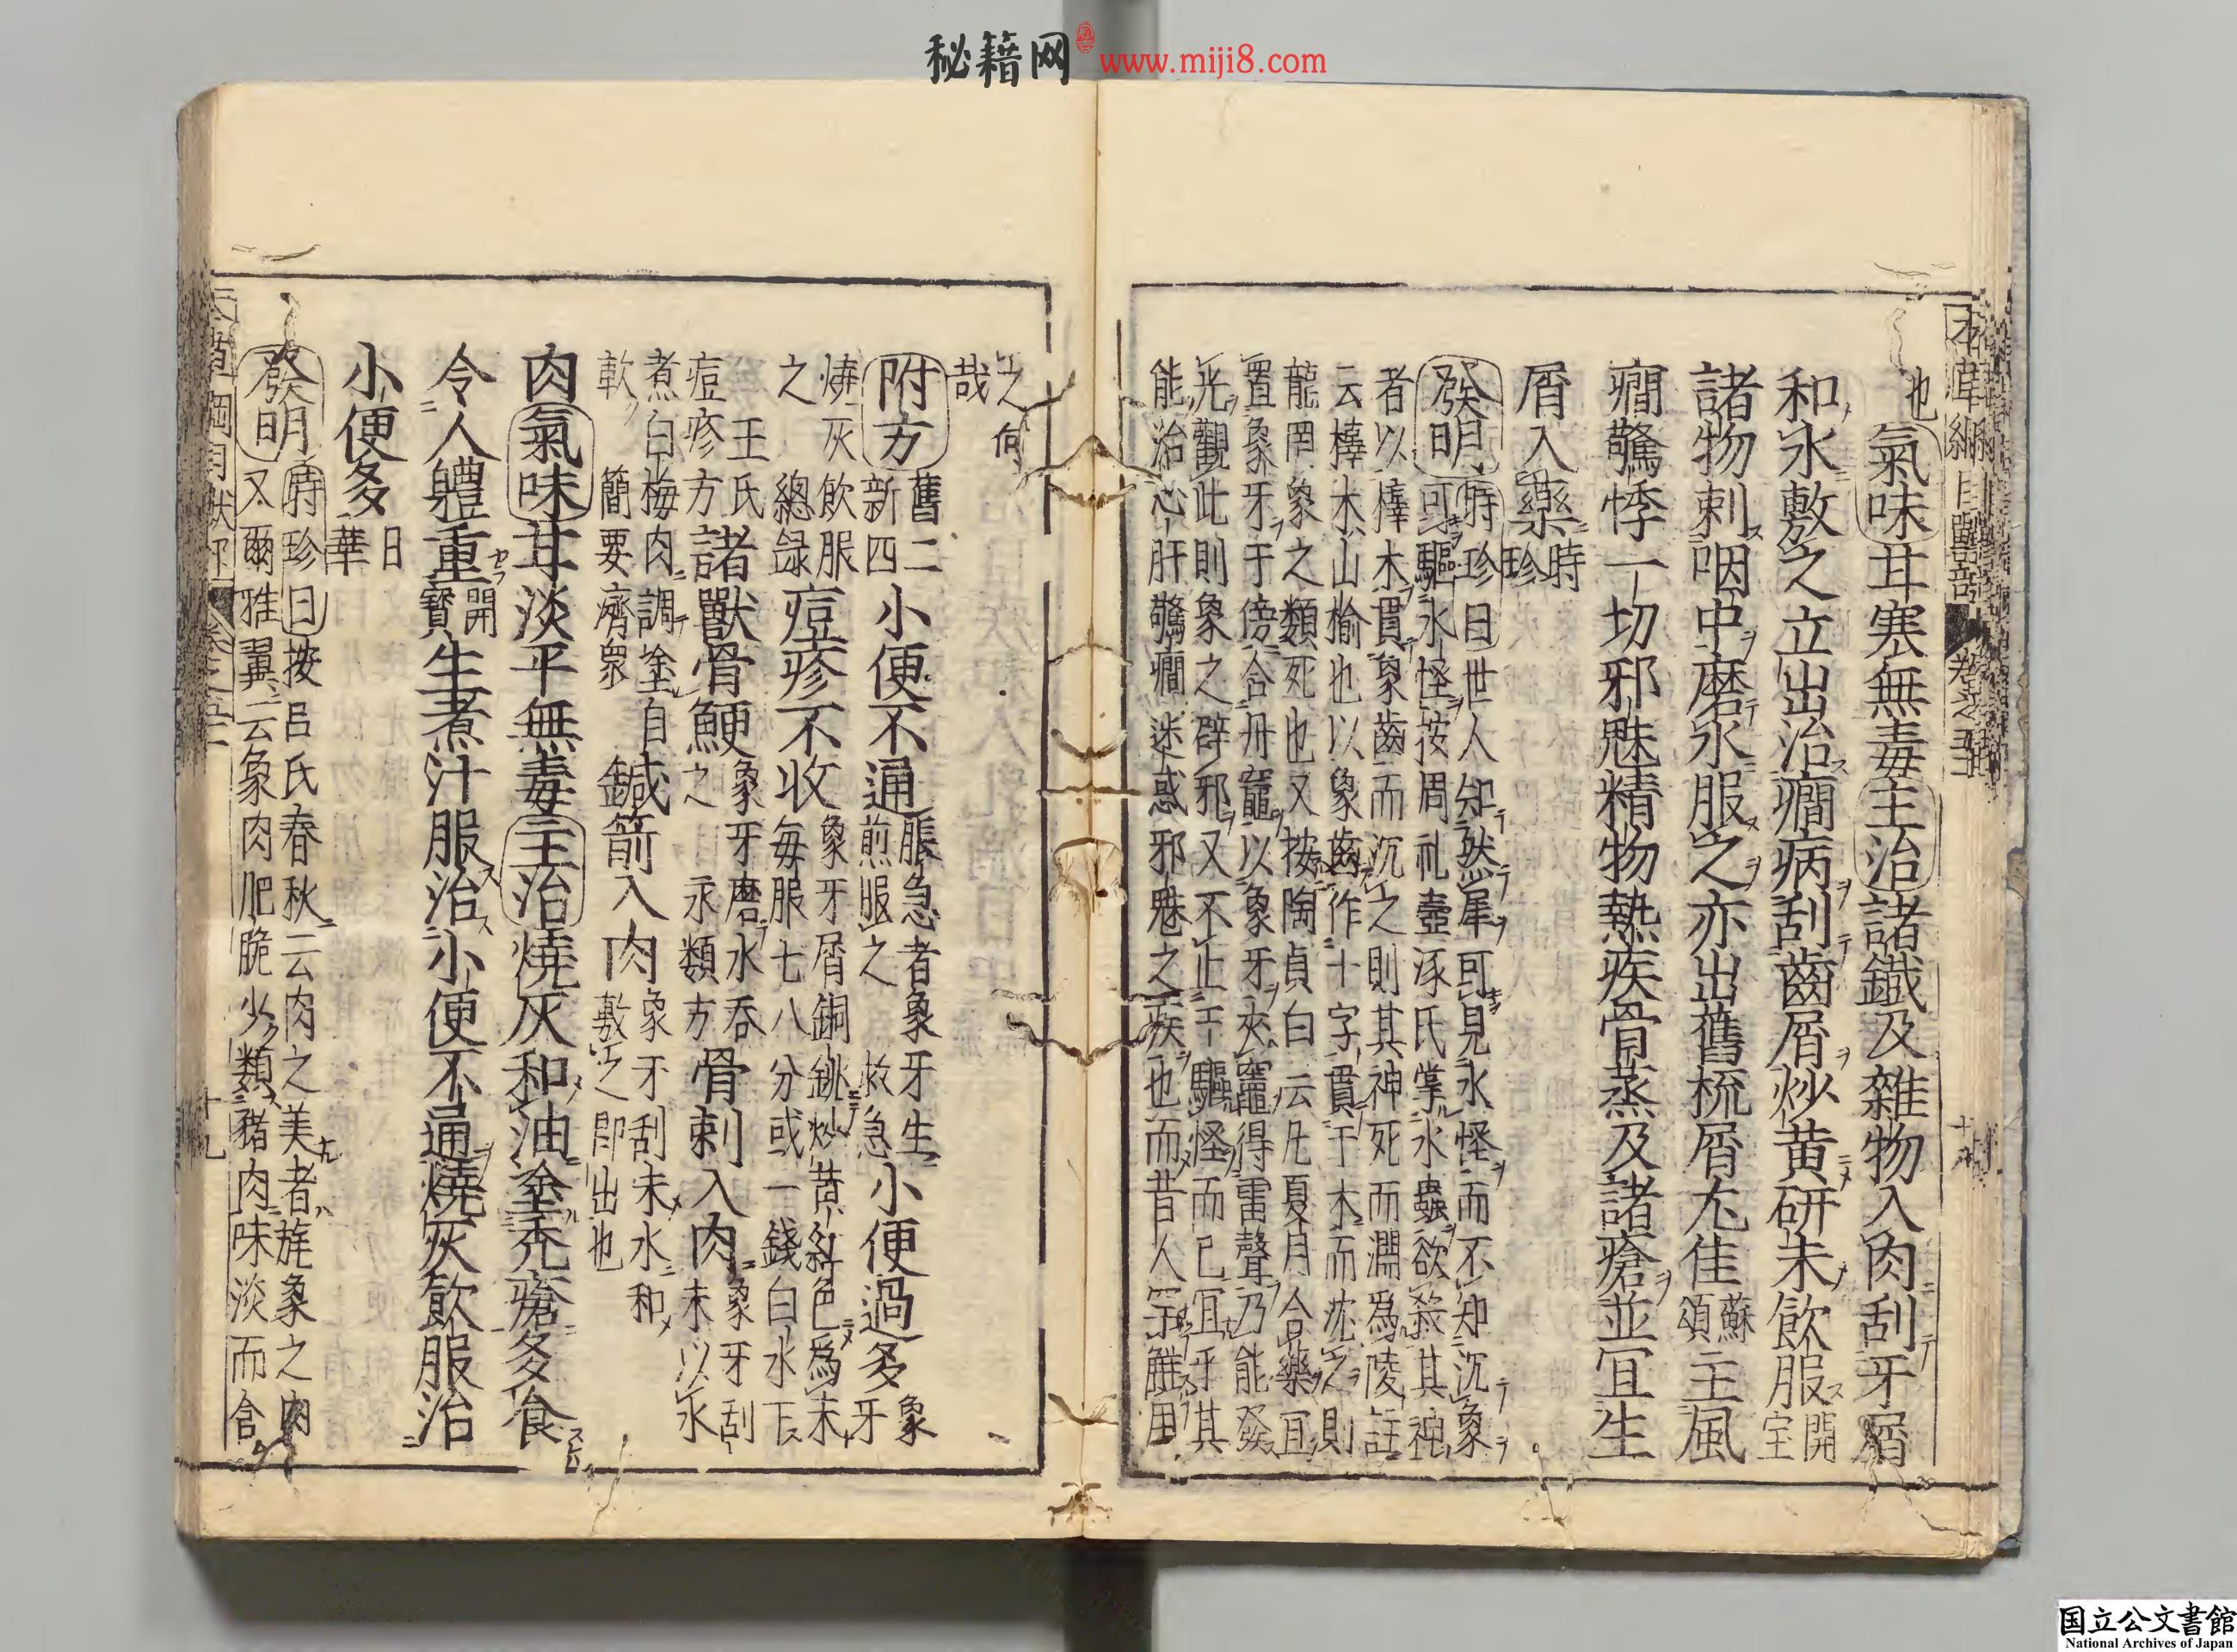 秘籍网 www.miji8.com
也氣味甘寒無毒主治諸鐵及雜物入肉刮牙屑
和水敷之立出治癇病刮齒屑炒黄研末飲服開宝
諸物刺咽中磨水服之亦出舊梳屑尤佳蘇頌主風
癇驚悸一切邪魅精物熱疾骨蒸及諸瘡並宜生
屑入藥時珍
發明時珍曰世人知然犀可見水怪而不知沉象
可驅水怪按周礼壺涿氏掌水蟲欲殺其神
者以橭木貫象齒而沉之則其神死而淵爲陵註
云橭木山榆也以象齒作十字貫于木而沈之則
龍罔象之類死也又按陶貞白云凡夏月合藥宜
置象牙于傍合丹竈以象牙夾竈得雷聲乃能發
光觀此則象之辟邪又不止于驅怪而已宜乎其
能治心肝驚癇迷惑邪魅之疾也而昔人罕解用
之何
哉
附方舊二新四小便不通脹急者象牙生煎服之救急小便過多象牙
燒灰飲服之總録痘疹不收象牙屑銅銚炒黄紅色爲末每服七八分或一錢白水下
王氏痘疹方諸獸骨鯁象牙磨水吞之永類方骨刺入肉象牙刮末以水
煮白梅肉調塗自軟簡要濟衆鍼箭入肉象牙刮末水和敷之即出也
肉氣味甘淡平無毒主治燒灰和油塗禿瘡多食
令人體重開寶生煮汁服治小便不通燒灰飲服治
小便多日華
發明時珍曰按吕氏春秋云肉之美者旄象之肉
又爾雅翼云象肉肥脆少類豬肉味淡而含
国立公文書館
National Archives of Japan